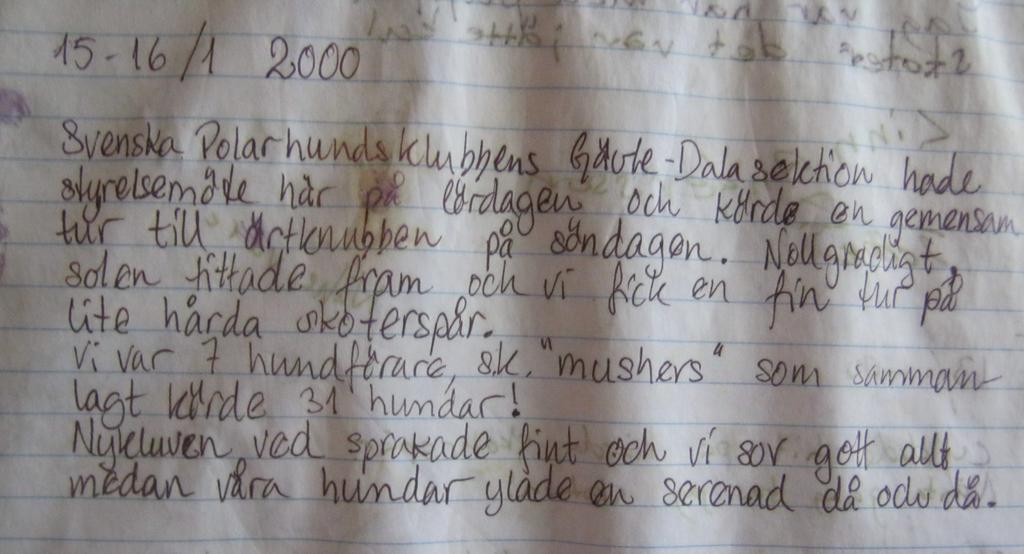 15-16/1 2000
Svenska Polarhundsklubbens Gävle-Dala sektion hade
styrelsemöte här på lördagen och körde en gemensam
tur till Örtknubben på söndagen. Nollgradigt,
solen tittade fram och vi fick en fin tur på
lite hårda skoterspår.
Vi var 7 hundförare, s.k. "mushers" som samman-
lagt körde 31 hundar!
Nykluven ved sprakade fint och vi sov gott allt
medan våra hundar ylade en serenad då och då.